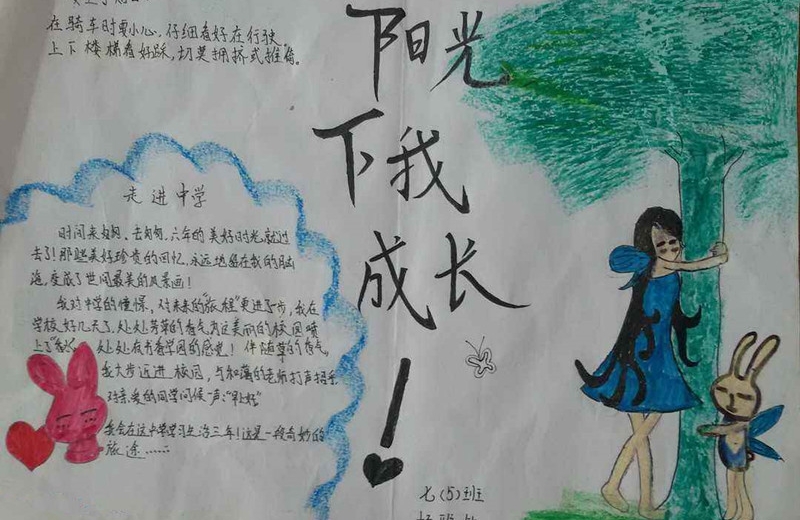 在骑车时要小心，仔细看好在行驶
上下楼梯看好踩，切莫拥挤或推
阳光
下我
成长
！
走进中学
时间来匆匆、去匆匆、六年的美好时光就过
去了！那些美好珍贵的回忆，永远地留在我的脑
海，变成了世间最美的风景画！
我对中学的憧憬，对未来的“旅程”更进了一步，我在
学校好几天了，处处芳草的香气为这美丽的校园喷
上了“香水”，处处有书香学园的感觉！伴随草的香气，
我大步迈进校园，与和蔼的老师打声招乎
对亲爱的同学问候一声：“早上好”
我会在这中学学习生活三年！这是一段奇妙的
旅途……
七（5）班